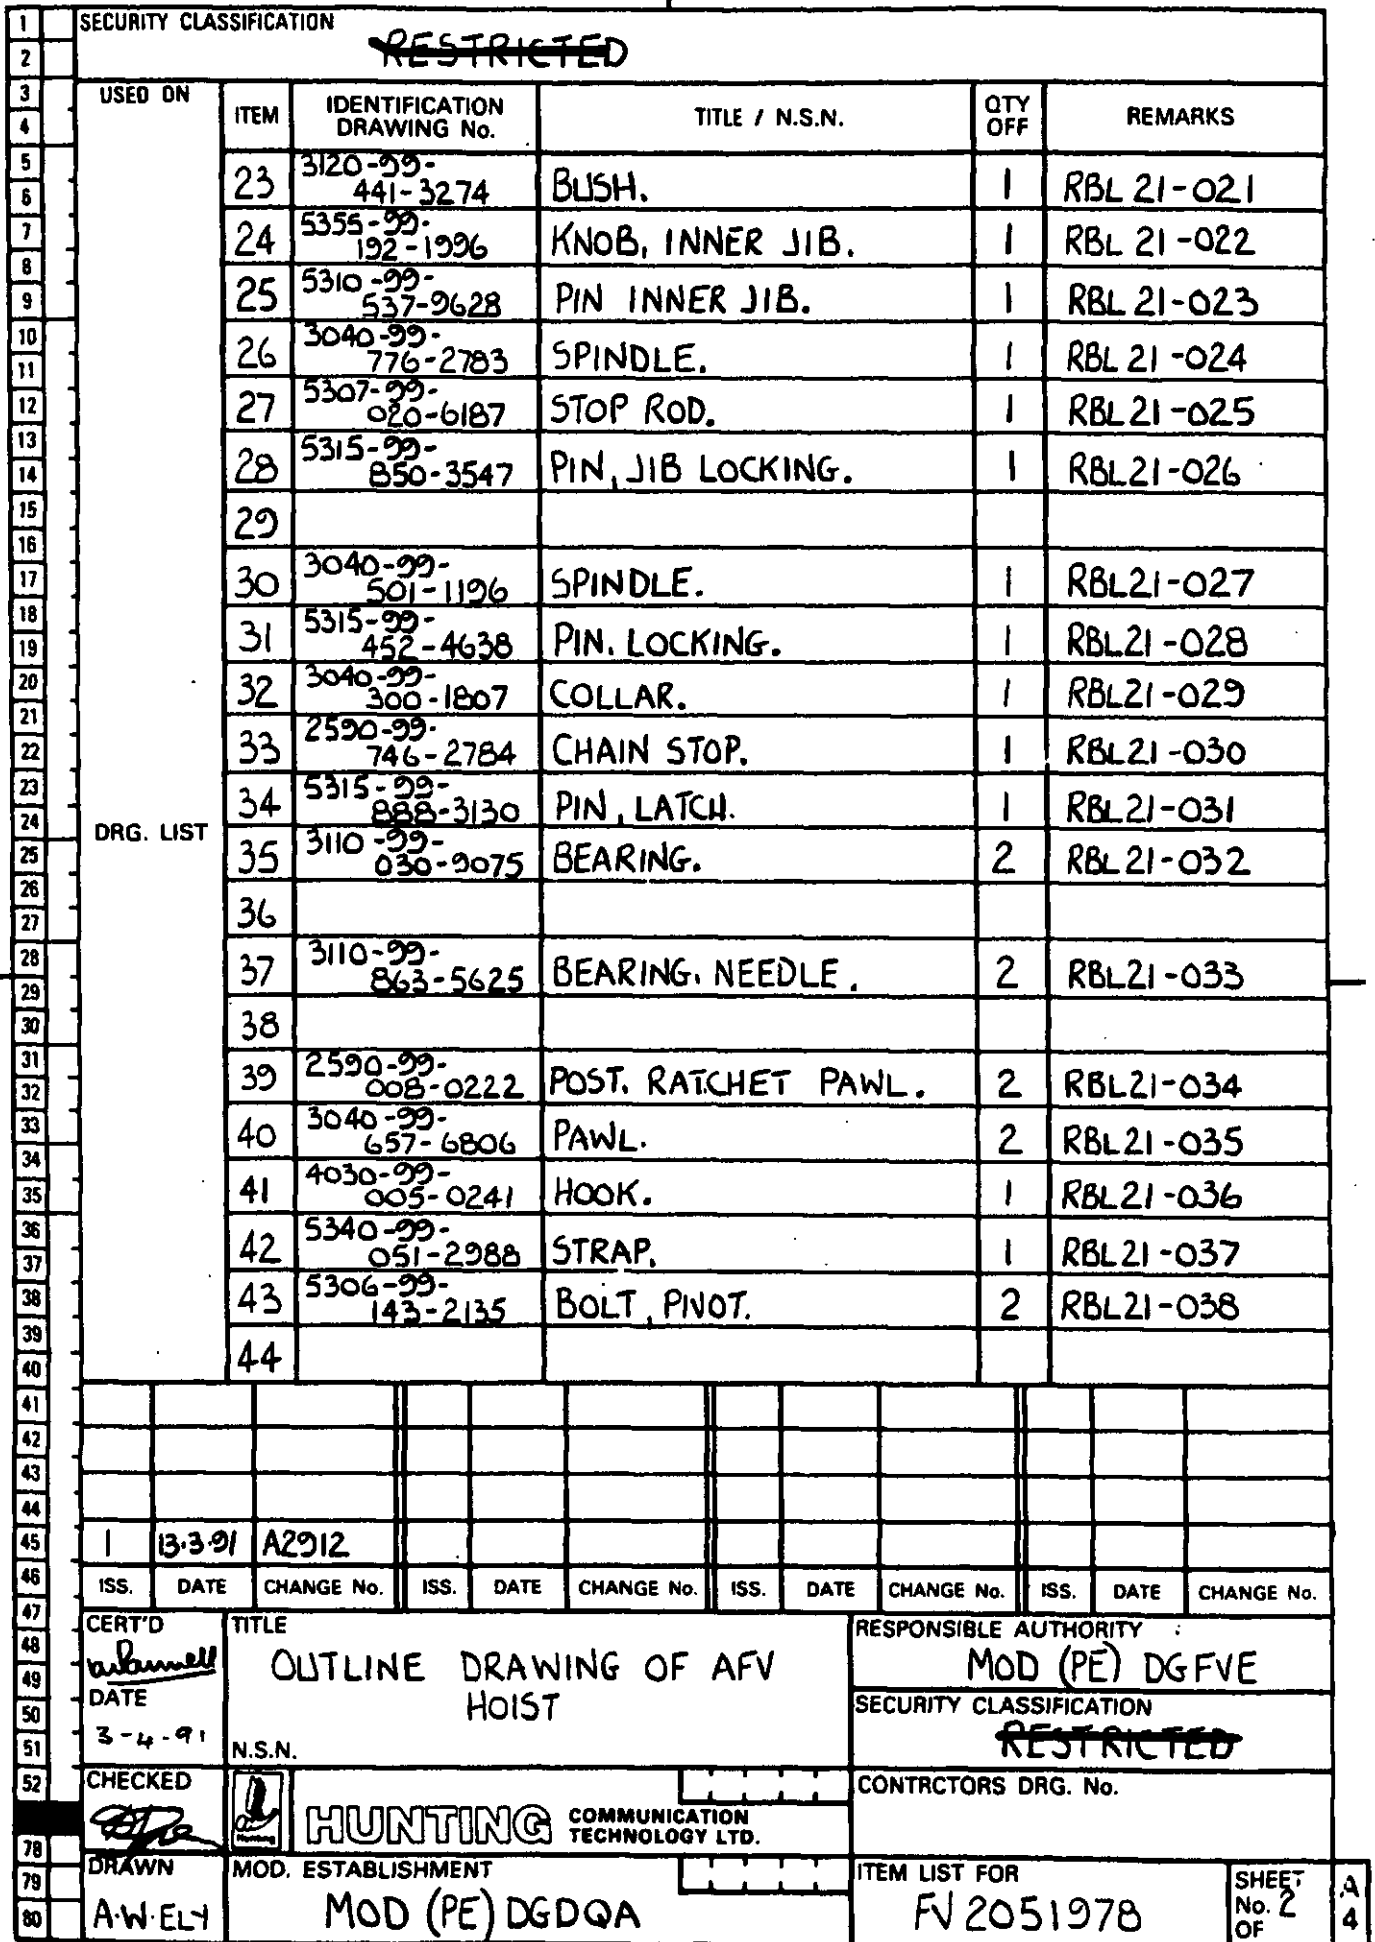 SECURITY CLASSIFICATION
RESTRICTED
USED ON
ITEM IDENTIFICATION DRAWING No. TITLE / N.S.N. QTY OFF REMARKS
23 3120-99-441-3274 BUSH. 1 RBL 21-021
24 5355-99-192-1996 KNOB, INNER JIB. 1 RBL 21-022
25 5310-99-537-9628 PIN INNER JIB. 1 RBL 21-023
26 3040-99-776-2783 SPINDLE. 1 RBL 21-024
27 5307-99-020-6187 STOP ROD. 1 RBL 21-025
28 5315-99-850-3547 PIN, JIB LOCKING. 1 RBL21-026
29
30 3040-99-501-1196 SPINDLE. 1 RBL21-027
31 5315-99-452-4638 PIN. LOCKING. 1 RBL21-028
32 3040-99-300-1807 COLLAR. 1 RBL21-029
33 2590-99-746-2784 CHAIN STOP. 1 RBL21-030
34 5315-99-888-3130 PIN, LATCH. 1 RBL21-031
DRG. LIST
35 3110-99-030-9075 BEARING. 2 RBL21-032
36
37 3110-99-863-5625 BEARING. NEEDLE. 2 RBL21-033
38
39 2590-99-008-0222 POST. RATCHET PAWL. 2 RBL21-034
40 3040-99-657-6806 PAWL. 2 RBL21-035
41 4030-99-005-0241 HOOK. 1 RBL21-036
42 5340-99-051-2988 STRAP. 1 RBL21-037
43 5306-99-143-2135 BOLT, PIVOT. 2 RBL21-038
44
1 13.3.91 A2912
ISS. DATE CHANGE No. ISS. DATE CHANGE No. ISS. DATE CHANGE No. ISS. DATE CHANGE No.
CERT'D
DATE
3-4-91
TITLE
OUTLINE DRAWING OF AFV
HOIST
N.S.N.
RESPONSIBLE AUTHORITY
MOD (PE) DGFVE
SECURITY CLASSIFICATION
RESTRICTED
CHECKED
Hunting
HUNTING COMMUNICATION
TECHNOLOGY LTD.
CONTRCTORS DRG. No.
DRAWN
A.W.ELY
MOD. ESTABLISHMENT
MOD (PE) DGDQA
ITEM LIST FOR
FV 2051978
SHEET
No. 2
OF
A
4
1
2
3
4
5
6
7
8
9
10
11
12
13
14
15
16
17
18
19
20
21
22
23
24
25
26
27
28
29
30
31
32
33
34
35
36
37
38
39
40
41
42
43
44
45
46
47
48
49
50
51
52
78
79
80